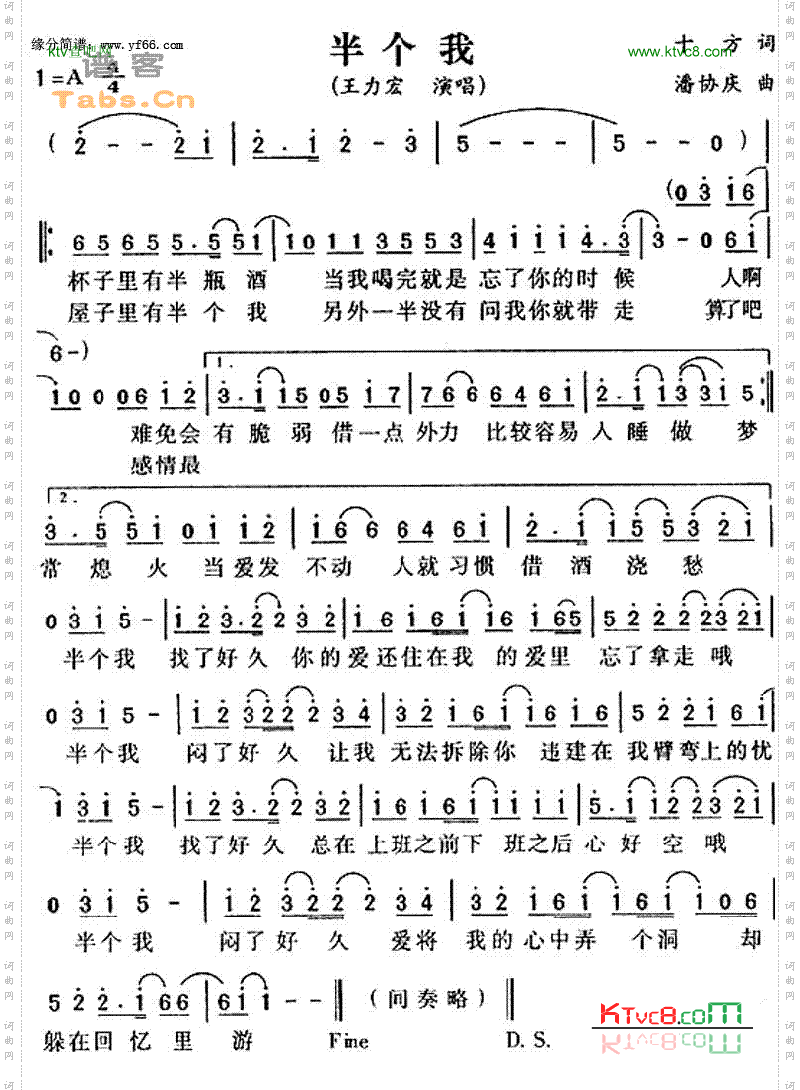 缘分简谱：www.yf66.com
ktv音吧网
谱客
Tabs.Cn
半个我
ktvc8.com
十方 词
1=A 4/4
(王力宏 演唱)
潘协庆 曲
( 2 - - 2 1 | 2 . 1 2 - 3 | 5 - - - | 5 - - 0 ) |
(0 3 1 6
6 5 6 5 6 5 5 . 5 5 5 1 | 1 0 1 1 3 5 5 5 3 | 4 1 1 1 4 . 3 | 3 - 0 6 1 |
杯子里有半瓶酒 当我喝完就是忘了你的时候 人啊
屋子里有半个我 另外一半没有问我你就带走 算了吧
6 -)
1.
1 0 0 0 6 1 2 | 3 . 1 1 5 0 5 1 7 | 7 6 6 6 6 4 6 1 | 2 . 1 1 3 3 1 5 :
难免会有脆弱借一点外力 比较容易入睡做梦
感情最
2.
3 . 5 5 1 0 1 1 2 | 1 6 6 6 4 6 1 | 2 . 1 1 5 5 3 2 1 |
常熄火当爱发不动 人就习惯借酒浇愁
0 3 1 5 - | 1 2 3 . 2 2 3 2 | 1 6 1 6 1 1 6 1 6 5 | 5 2 2 2 2 3 2 1 |
半个我 找了好久你的爱还住在我的爱里 忘了拿走哦
0 3 1 5 - | 1 2 3 2 2 2 3 4 | 3 2 1 6 1 1 6 1 6 | 5 2 2 1 6 1 |
半个我 闷了好久让我无法拆除你 违建在我臂弯上的忧
1 3 1 5 - | 1 2 3 . 2 2 3 2 | 1 6 1 6 1 1 1 1 1 | 5 . 1 1 2 2 3 2 1 |
半个我 找了好久 总在上班之前下班之后心好空哦
0 3 1 5 - | 1 2 3 2 2 2 3 4 | 3 2 1 6 1 1 6 1 1 0 6 |
半个我 闷了好久 爱将我的心中弄个洞 却
5 2 2 . 1 6 6 | 6 1 1 - - || (间奏略) ||
躲在回忆里游 Fine D.S.
KTvc8.com
词曲网